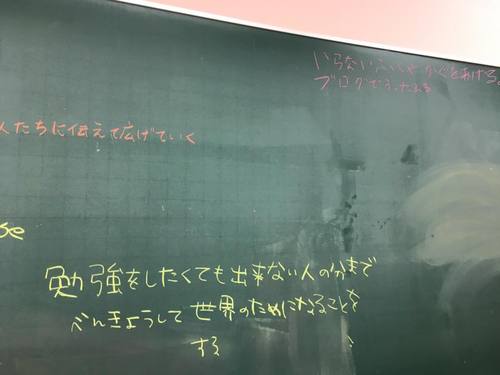 いらないふくや かぐをあげる。
ブログでうったえる
人たちに伝えて広げていく
se
勉強をしたくても出来ない人の分まで
べんきょうして世界のためになることを
する